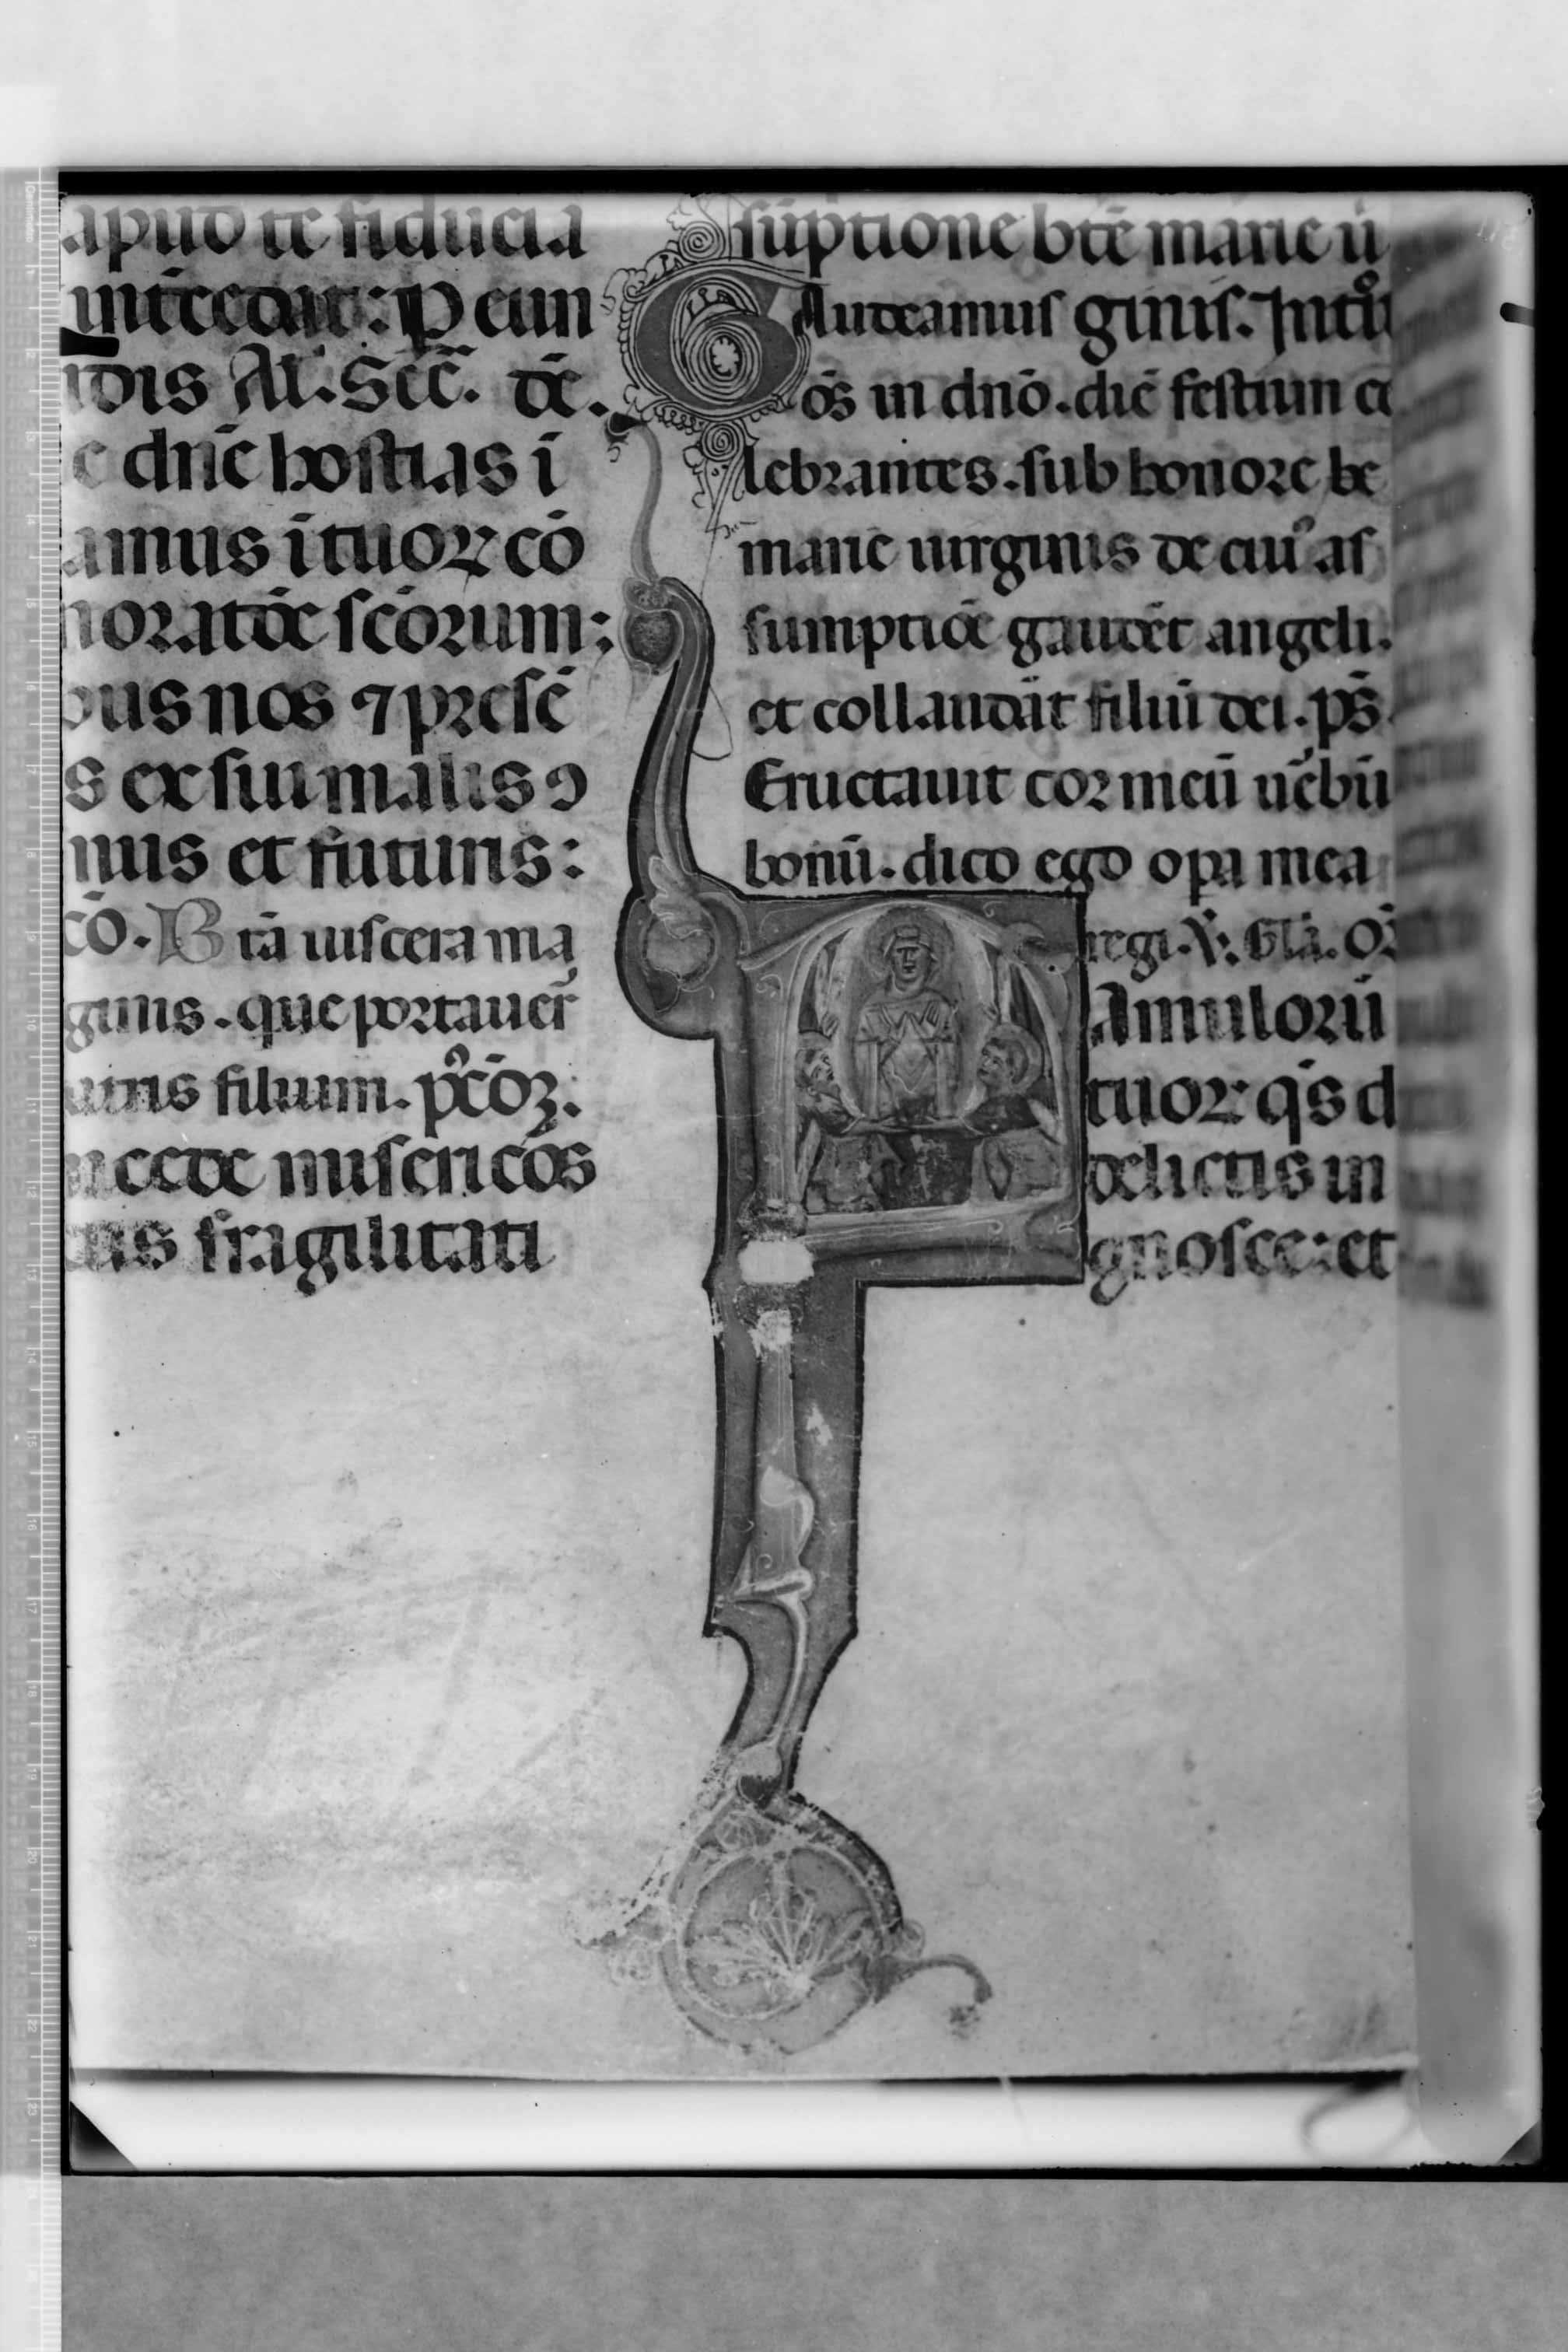 apud te fiducia
intercedat: P eun
Al. Scc̄. de.
dn̄e hostias i
amus i tuoꝝ cō
scōrum:
nos ⁊ presē
s ex sui malis ꝯ
mus et futuris:
cō. Btā uiscera ma
ginis. que portauer̄
filium. p̄cōꝫ.
misericōs
fragilitati
sūptione btē marie ui
Gaudeamus ginis. Introͥ
ōs in dn̄o. diē festum ce
lebrantes. sub honore be
marie uirginis de cuiꝰ as
sumptiōe gaudēt angeli.
et collaudāt filiū dei. p̄s.
Eructauit cor meū ūbū
bonū. dico ego opa mea
regi. ℣. Gl̄a. Or̄
Famulorū
tuoꝝ q̄s d
delictis in
gnosce: et